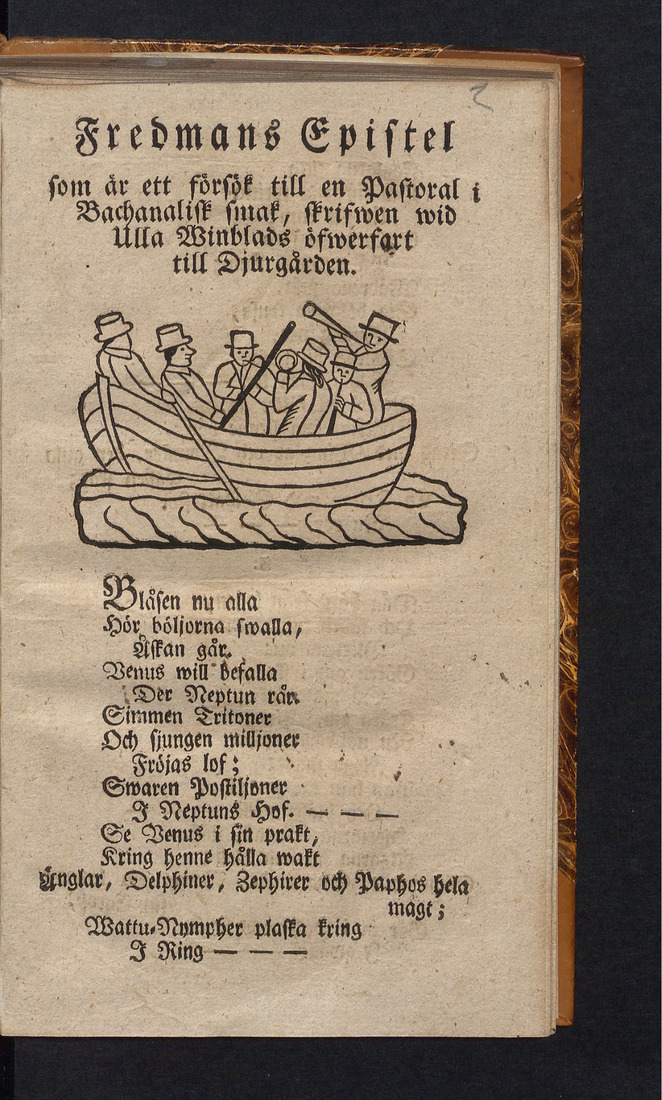 2
Fredmans Epistel
som är ett försök till en Pastoral i
Bachanalisk smak, skrifwen wid
Ulla Winblads öfwerfart
till Djurgården.
Blåsen nu alla
Hör böljorna swalla,
Åskan går.
Venus will befalla
Der Neptun rår.
Simmen Tritoner
Och sjungen milljoner
Fröjas lof;
Swaren Postiljoner
I Neptuns Hof. — — —
Se Venus i sin prakt,
Kring henne hålla wakt
Änglar, Delphiner, Zephirer och Paphos hela
magt;
Wattu-Nympher plaska kring
I Ring — — —